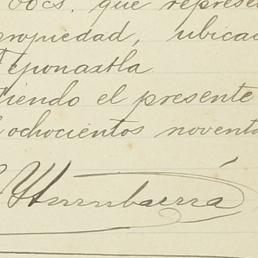 ocs. que represe
propiedad, ubica
Teponaxtla
siendo el presente
ochocientos novent
Yturribarría